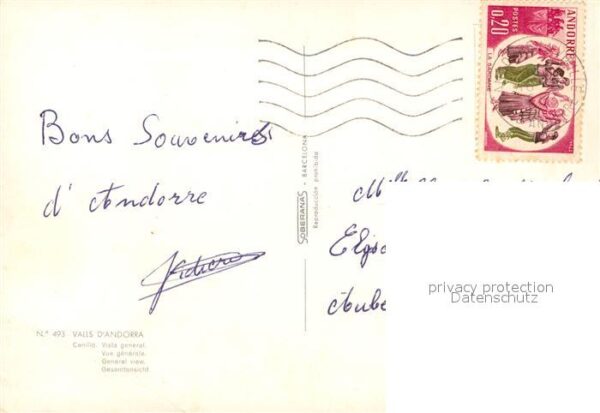 Bons Souvenires
d'Andorre
Nº 493 VALLS D'ANDORRA
Canillo. Vista general.
Vue générale.
General view.
Gesamtansicht.
SOBERANAS - BARCELONA
Reproducción prohibida
ANDORRE
POSTES
0,20
privacy protection
Datenschutz